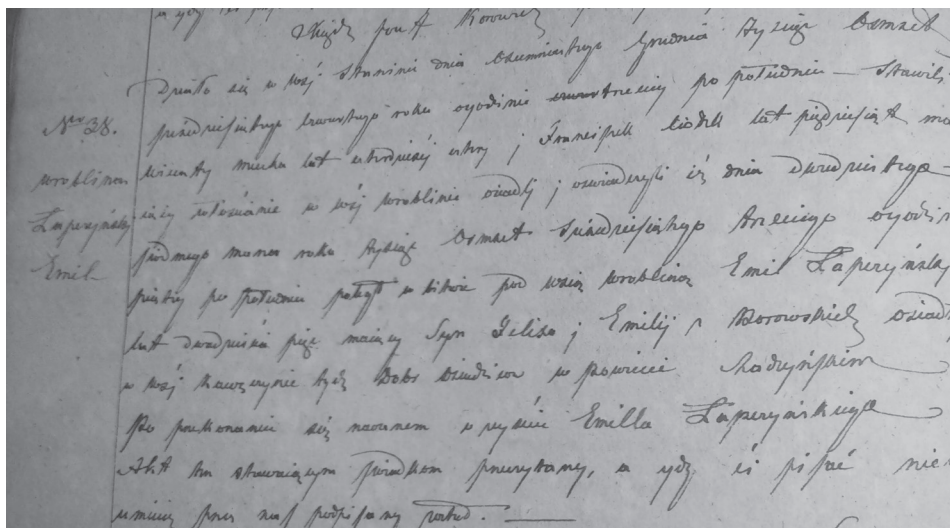 Ksiądz Borowicz
Nr 38.
wroblina
Łaperzyński
Emil
Działo się w wsi Staninie dnia Osiemnastego Grudnia tysiąc Osmset
sześdziesiątego czwartego roku o godzinie trzeciy po południu — Stawili
Wincenty mucha lat czterdzieści cztery j Franciszek lat pięćdziesiąt
włościanie w wsi wroblinie osiadli j oswiadczyli iż dnia dwudziestego
siódmego marca roku tysiąc Osmset Szesdziesiątego trzeciego o godzinie
piątey po południu poległ w bitwie pod wsią wrobliną Emil Łaperzyński
lat dwadzieścia pięć maiący Syn Felixa j Emilij z Borowskich
w wsi tych Dobr Dziedziców w Powiecie Radzyńskim
Po przekonaniu się naocznem o zejściu Emilla Łaperzyńskiego
Akt ten stawaiącym świadkom przeczytany, a gdy ci pisać nie
umieią przez nas podpisany został. —